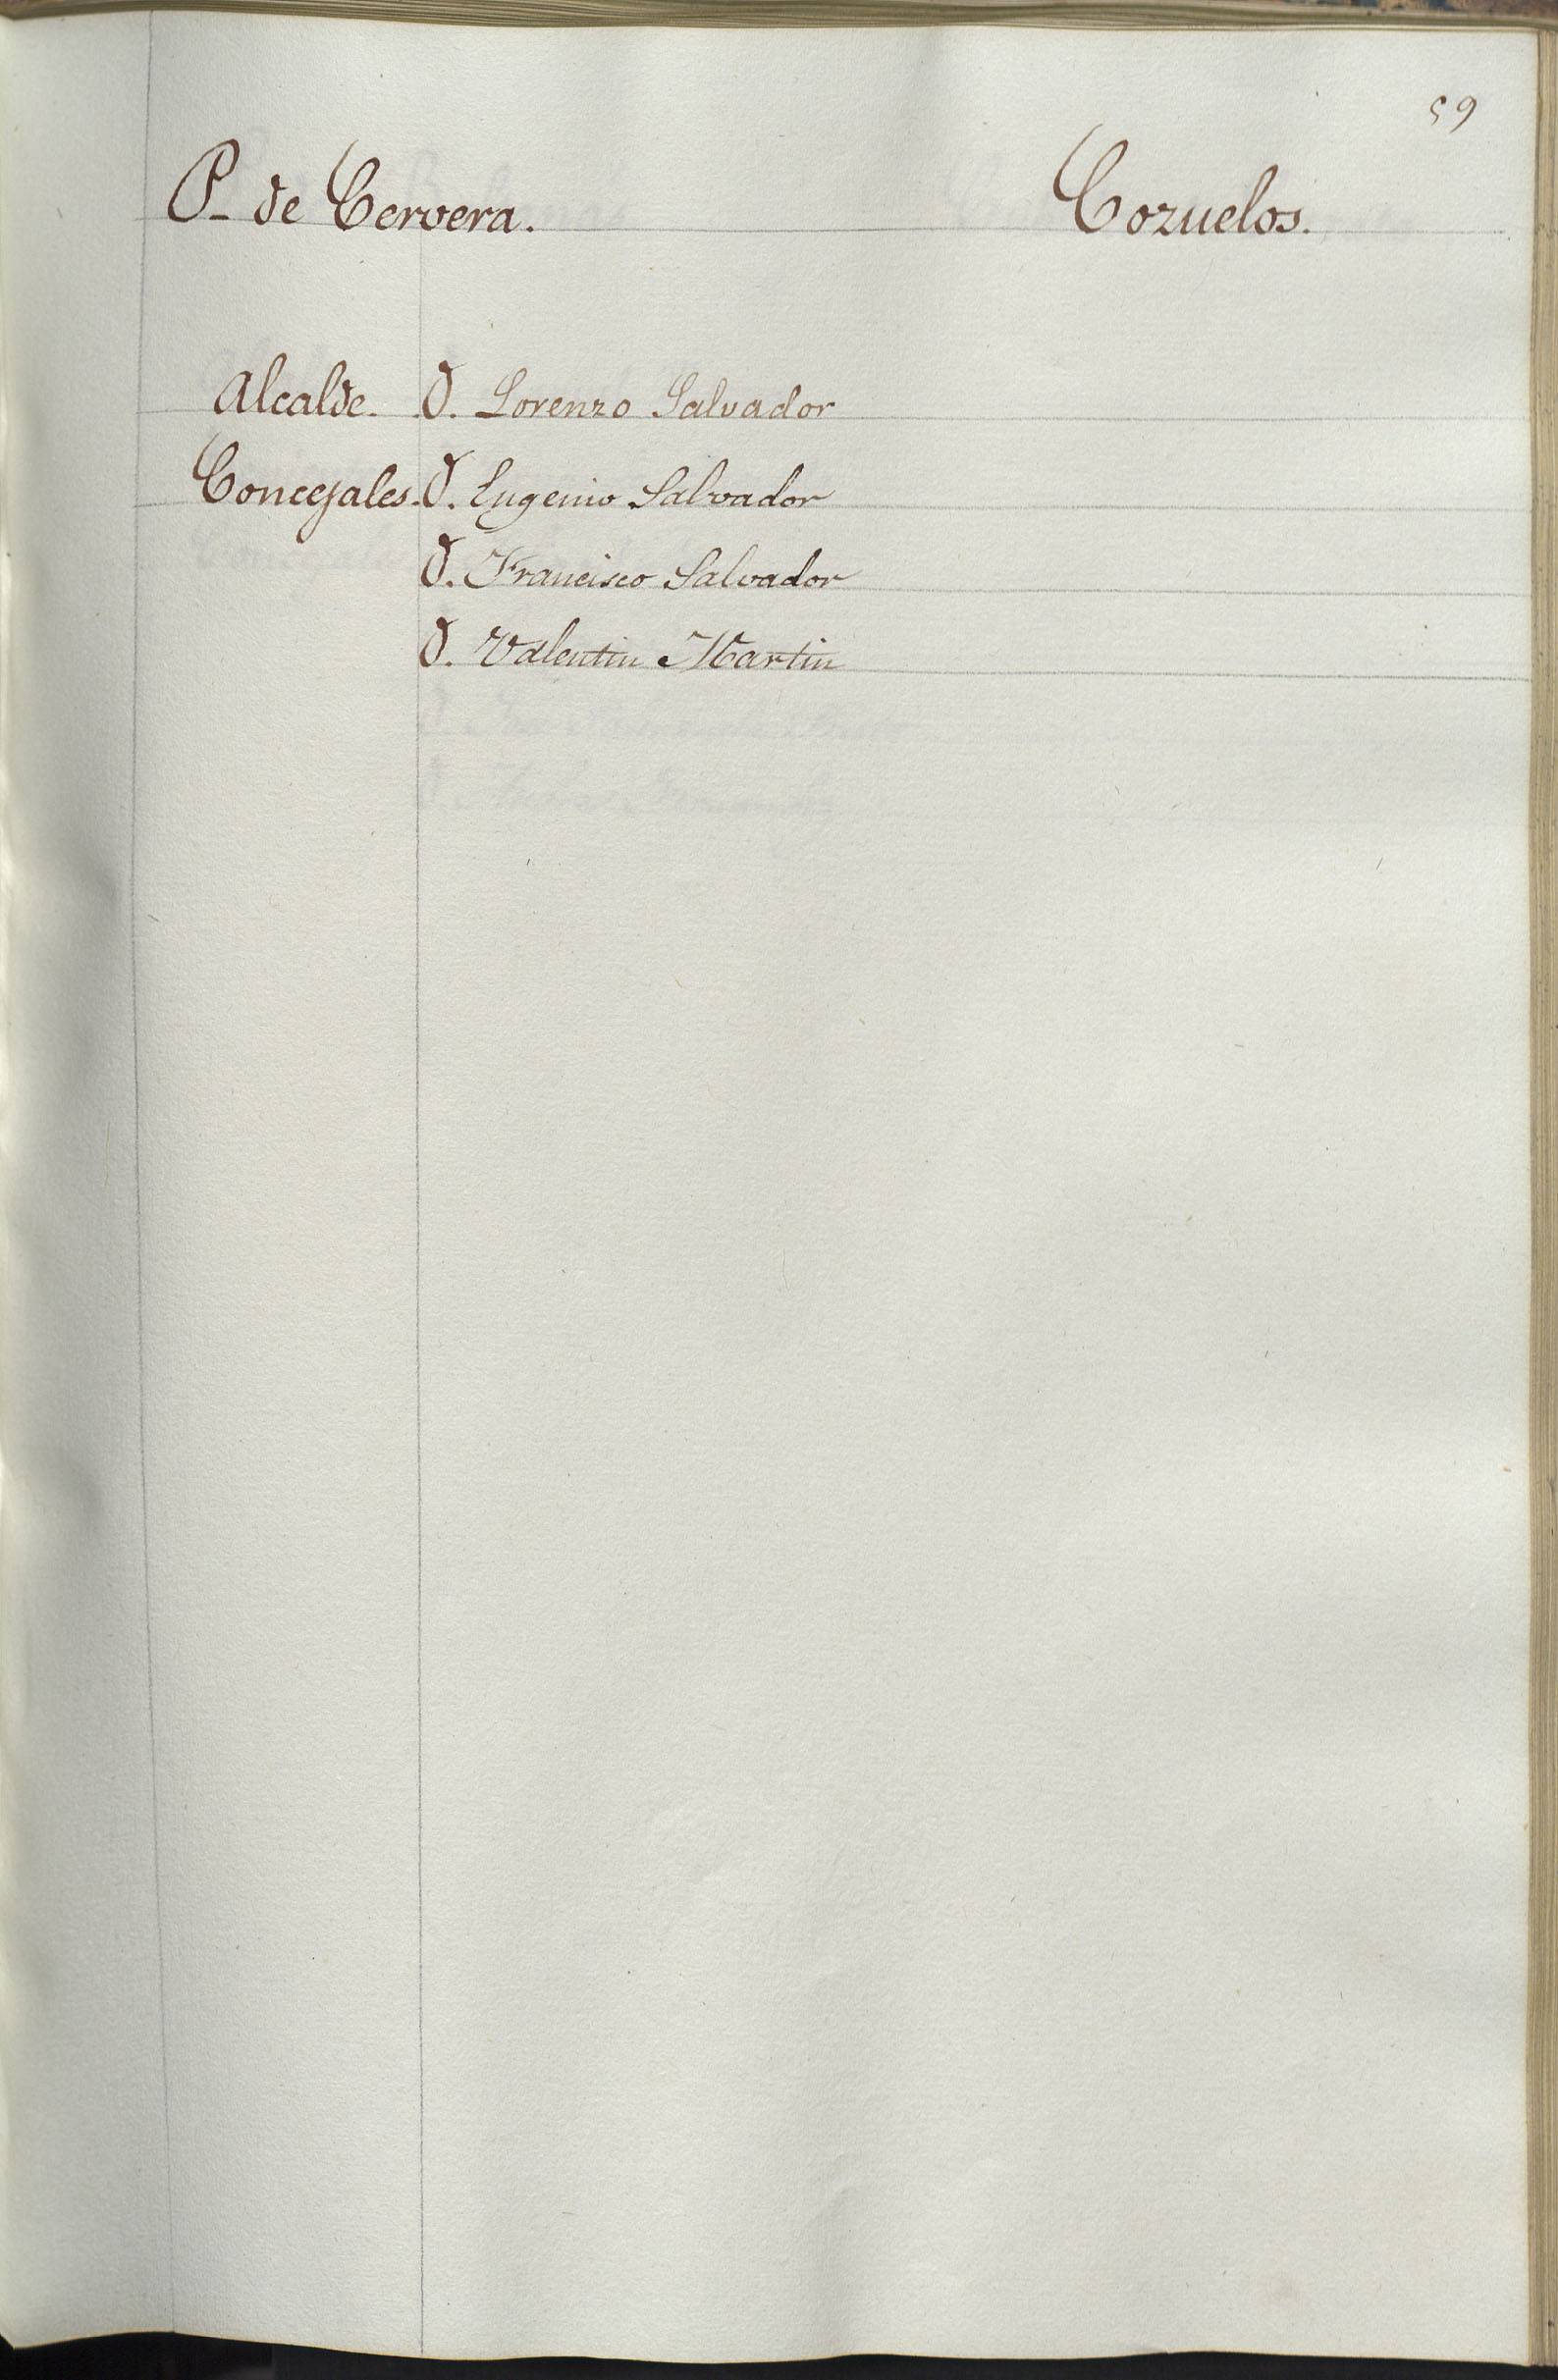 59
P. de Cervera. Cozuelos.
Alcalde. D. Lorenzo Salvador
Concejales. D. Eugenio Salvador
D. Francisco Salvador
D. Valentin Martin